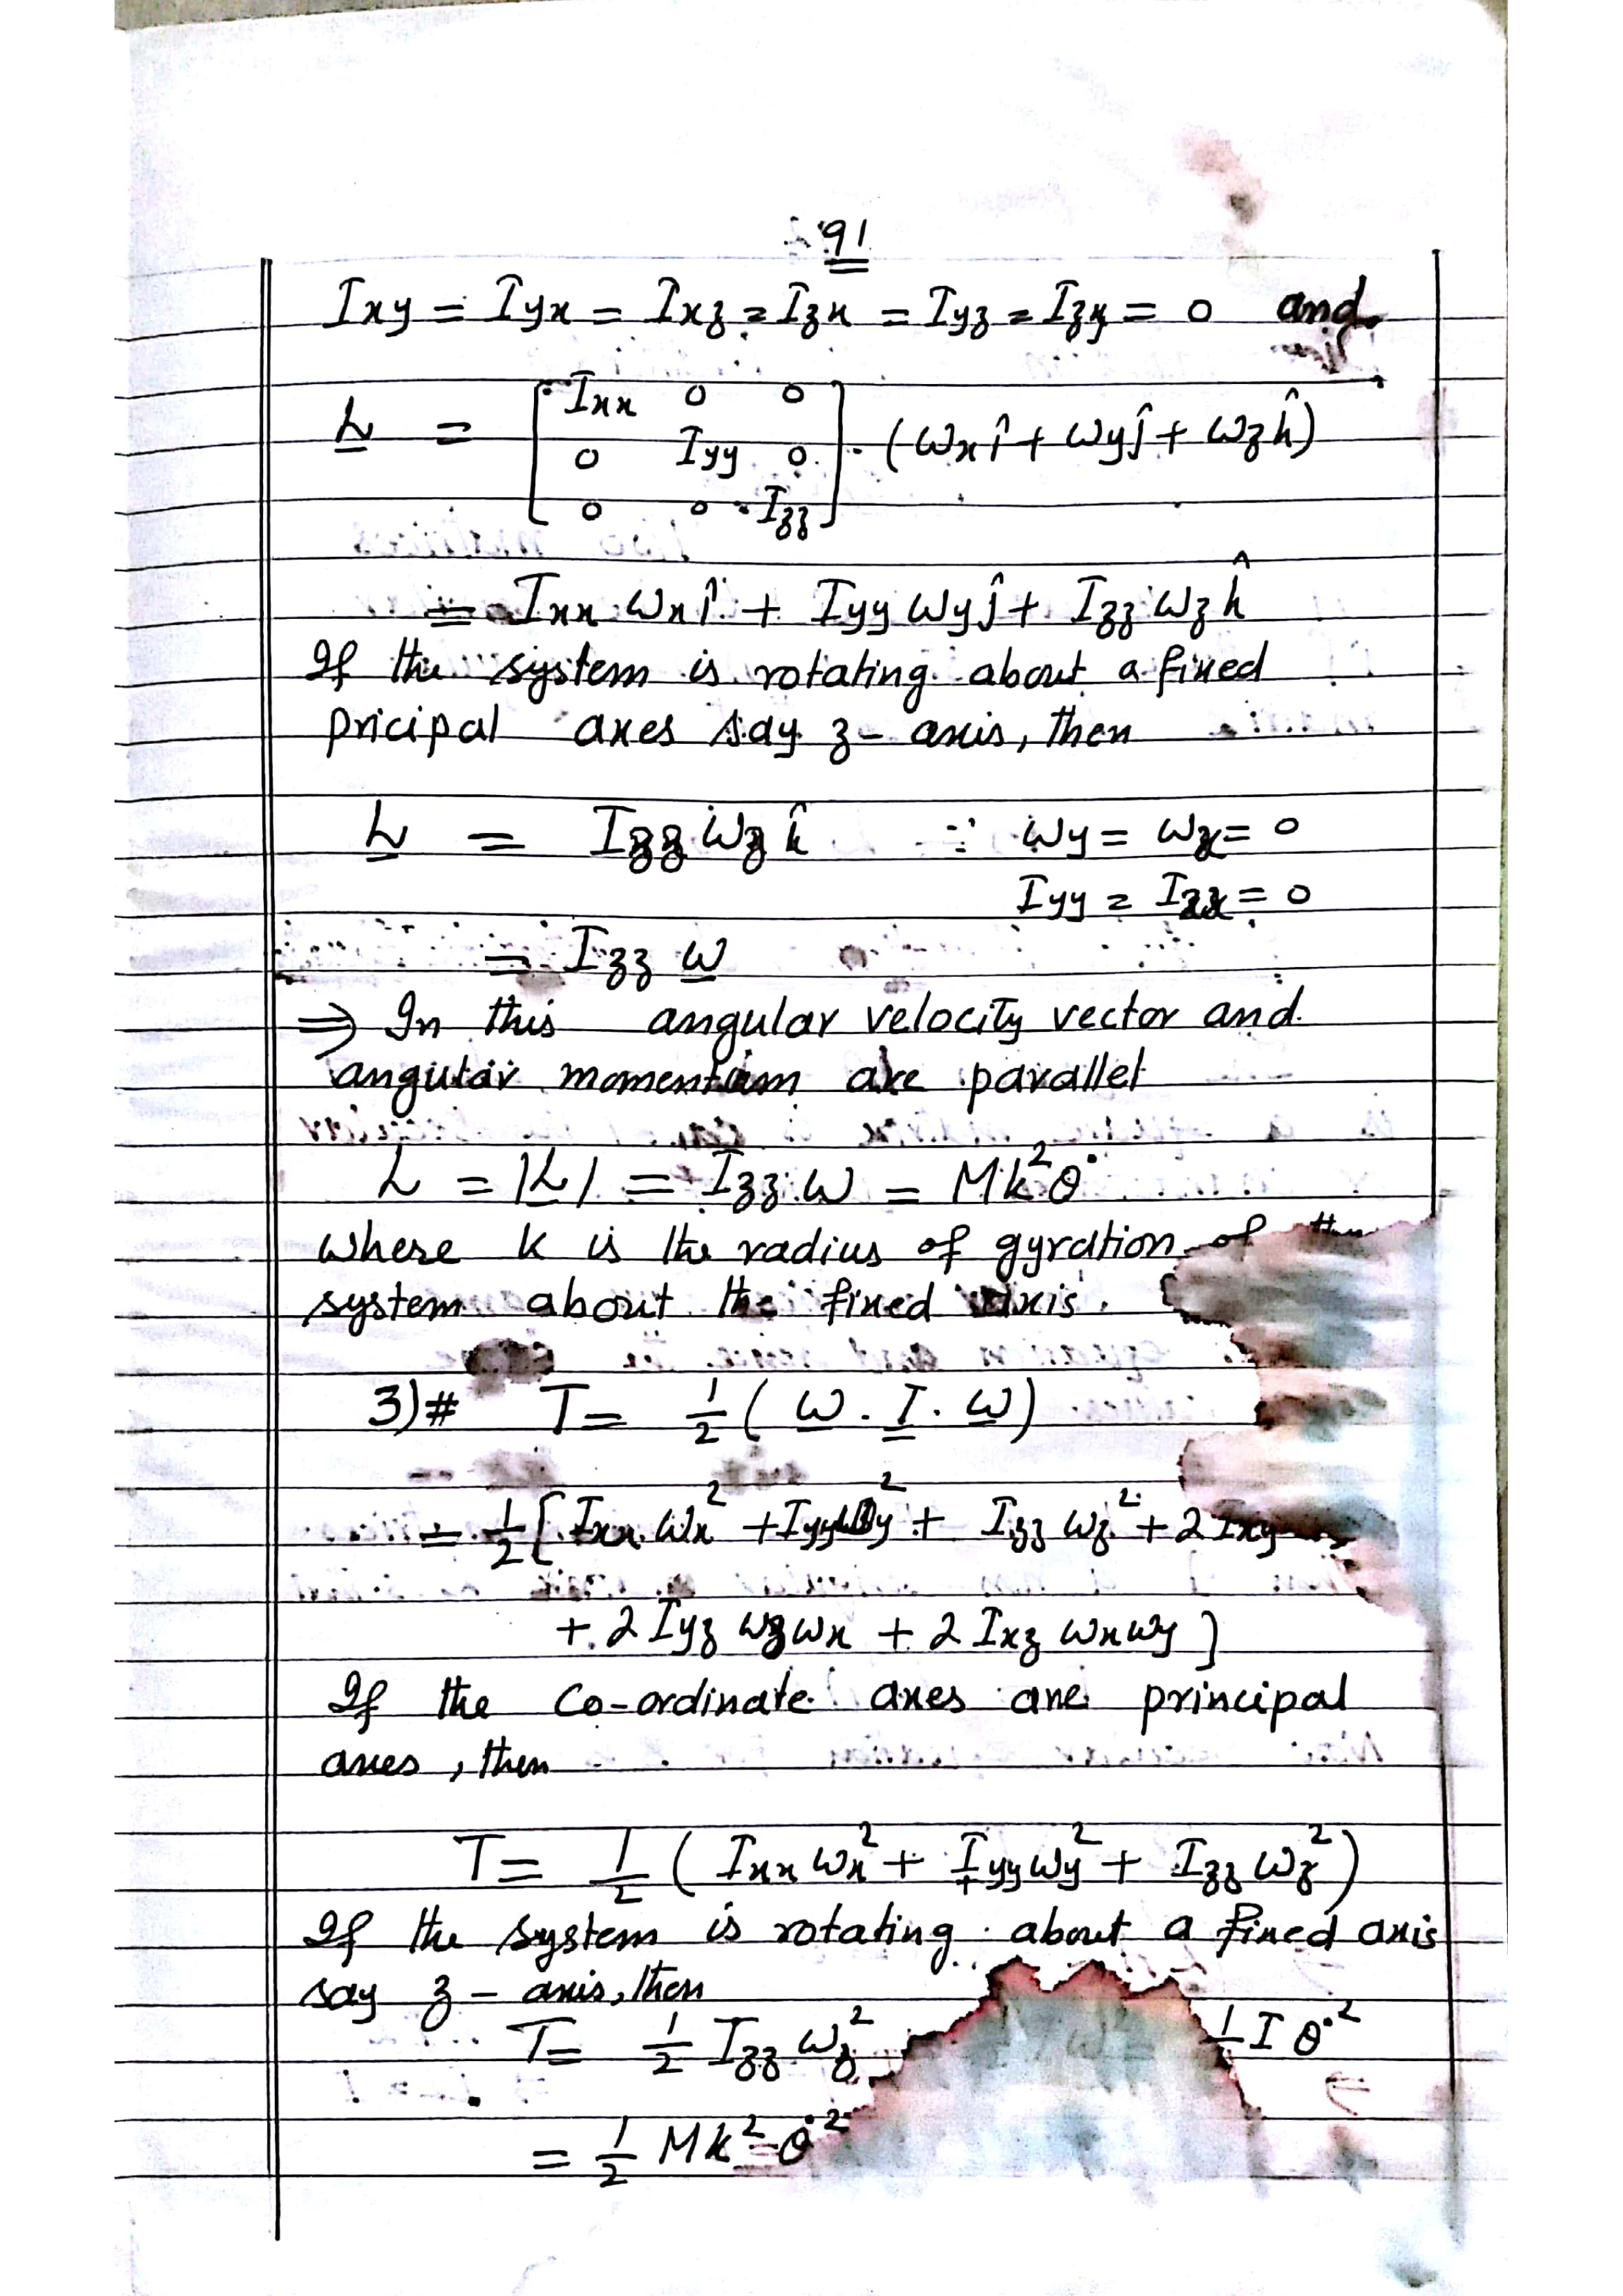 91
Ixy = Iyx = Ixz = Izx = Iyz = Izy = 0 and
L = [ Ixx 0 0
0 Iyy 0
0 0 Izz ] . (ωx î + ωy ĵ + ωz k̂)
= Ixx ωx î + Iyy ωy ĵ + Izz ωz k̂
If the system is rotating about a fixed
pricipal axes say z- axis, then
L = Izz ωz k̂ ∵ ωy = ωx = 0
Iyy = Ixx = 0
= Izz ω
⇒ In this angular velocity vector and
angular momentum are parallel
L = |L| = Izz ω = Mk²θ̇
where k is the radius of gyration of the
system about the fixed axis.
3)# T = 1/2 ( ω . I . ω )
= 1/2 [ Ixx ωx² + Iyy ωy² + Izz ωz² + 2 Ixy
+ 2 Iyz ωz ωx + 2 Ixz ωx ωy ]
If the Co-ordinate axes are principal
axes, then
T = 1/2 ( Ixx ωx² + Iyy ωy² + Izz ωz² )
If the system is rotating about a fixed axis
say z - axis, then
T = 1/2 Izz ωz² 1/2 I θ̇²
= 1/2 Mk² θ̇²